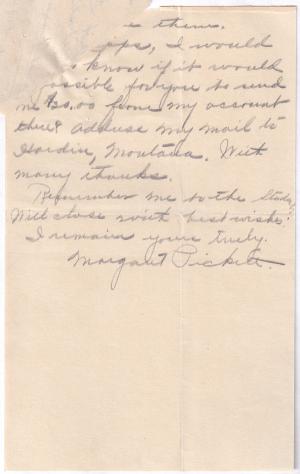 them.
I would
know if it would
ossible for you to send
me $30.00 from my account
there Address my mail to
Hardin, Montana. With
many thanks.
Remember me to the
Will close with best wishes
I remain yours truly.
Margaret Pickett.